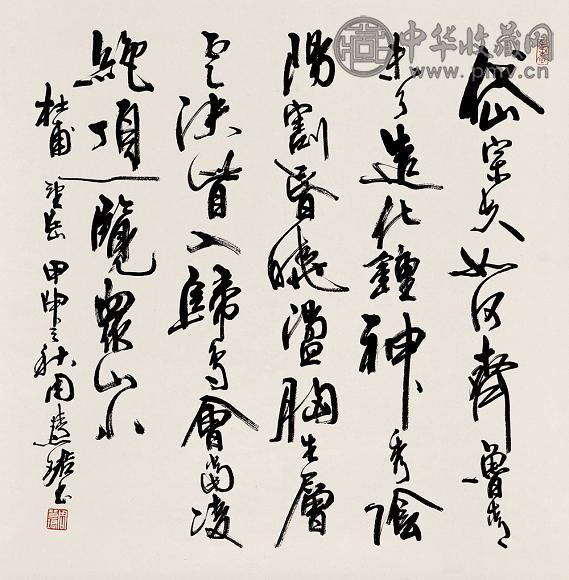 中华收藏网
www.pmv.cn
岱宗夫如何齊魯青
未了造化鍾神秀陰
陽割昏曉盪胸生層
雲決眥入歸鳥會當凌
絶頂一覽衆山小
杜甫望岳 甲申之秋周慧珺書